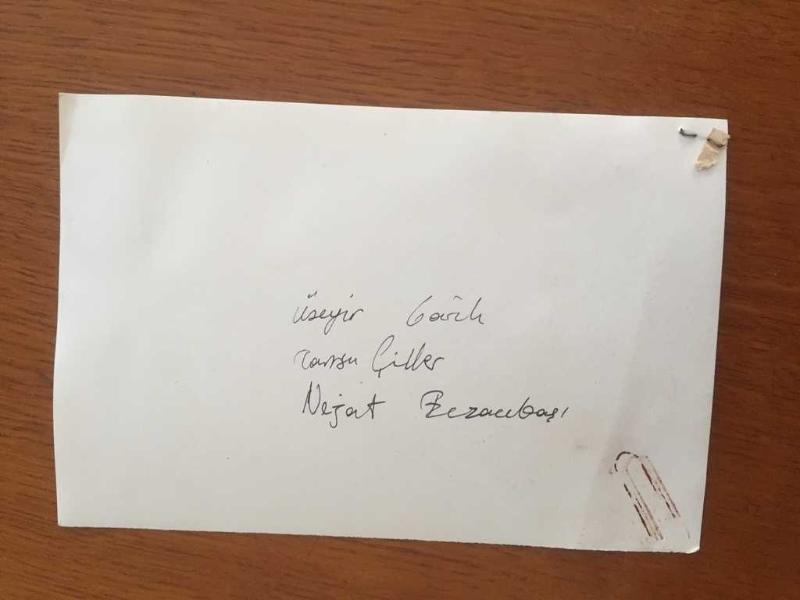 üseyir Garih
Tansu Çiller
Nejat Eczacıbaşı